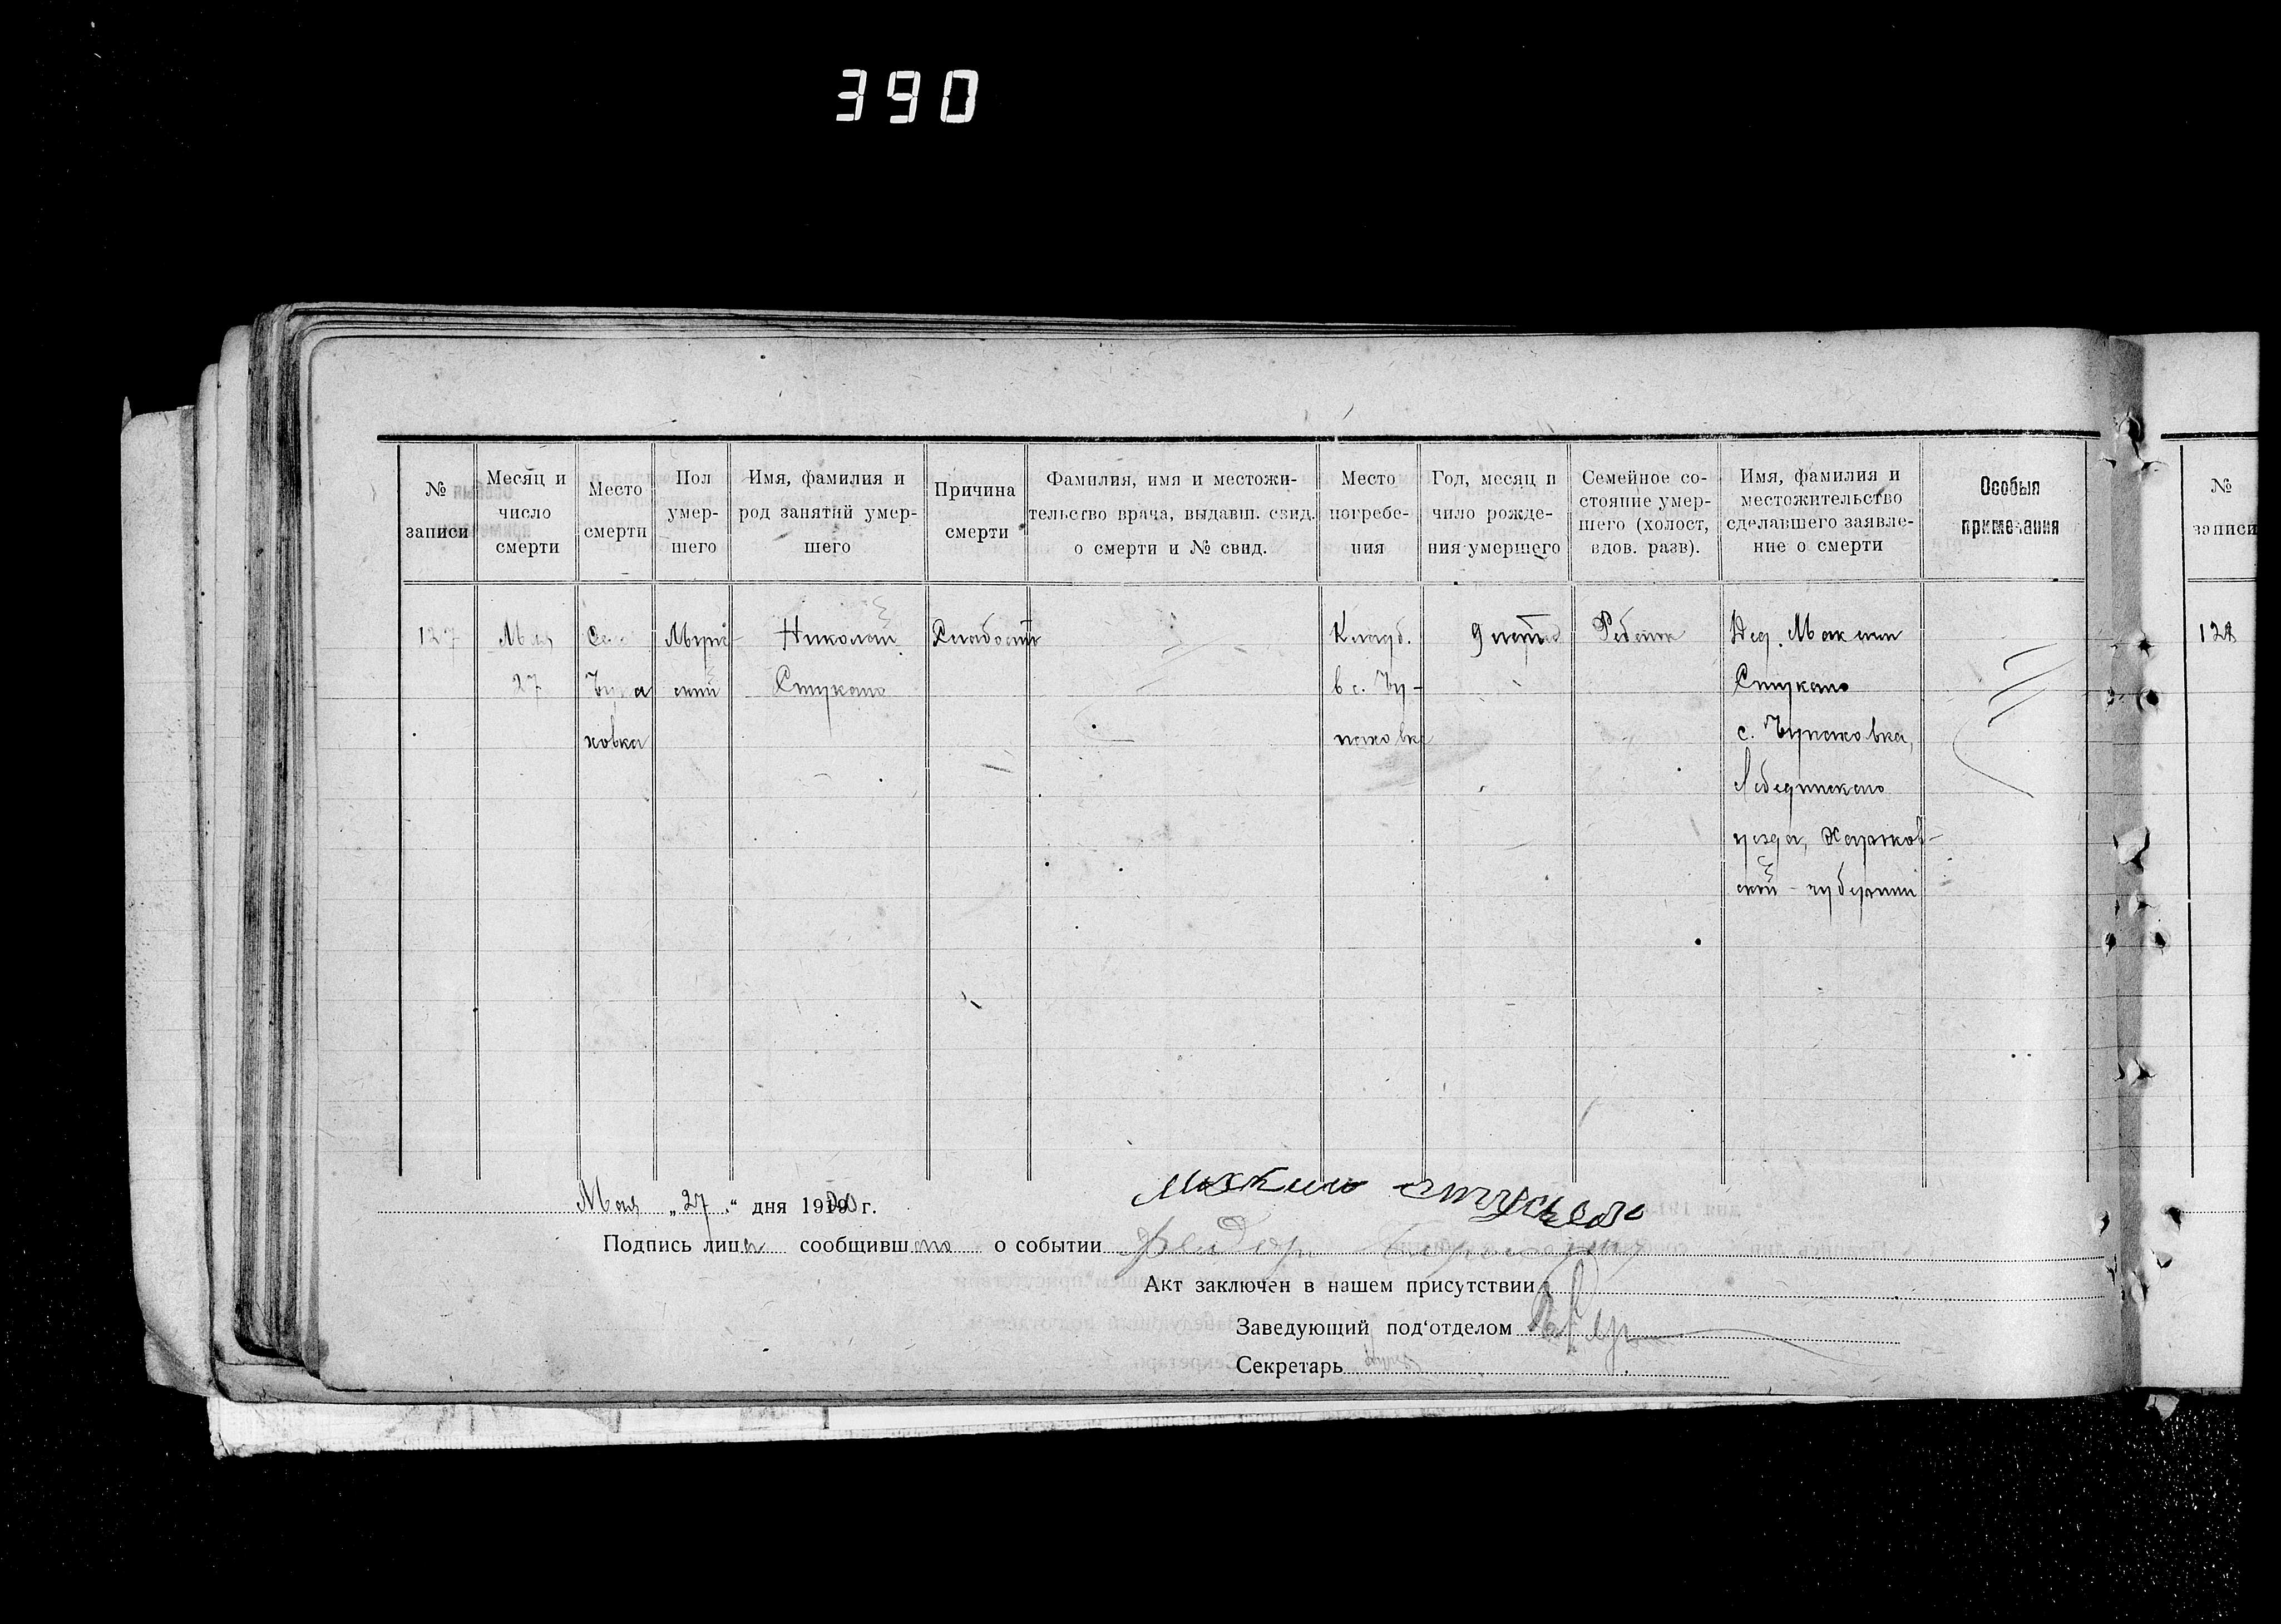 390
№ записи
Месяц и число смерти
Место смерти
Пол умер-шего
Имя, фамилия и род занятий умер-шего
Причина смерти
Фамилия, имя и местожи-тельство врача, выдавш. свид. о смерти и № свид.
Место погребе-ния
Год, месяц и число рожде-ния умершего
Семейное со-стояние умер-шего (холост, вдов. разв).
Имя, фамилия и местожительство сделавшего заявле-ние о смерти
Особыя примечания
№ записи
127
Мая
27
Село
ковка
Муж-
ской
Николай
Стукало
Слабость
Кладб.
в с. Чу-
паховке
9 месяцев
Ребенок
Дед. Максим
Стукало
с. Чупаховка,
Лебединского
уезда, Харьков-
ской губернии
128
Мая „27“ дня 1920 г.
Подпись лица сообщившего о событии
Акт заключен в нашем присутствии
Заведующий под‘отделом
Секретарь